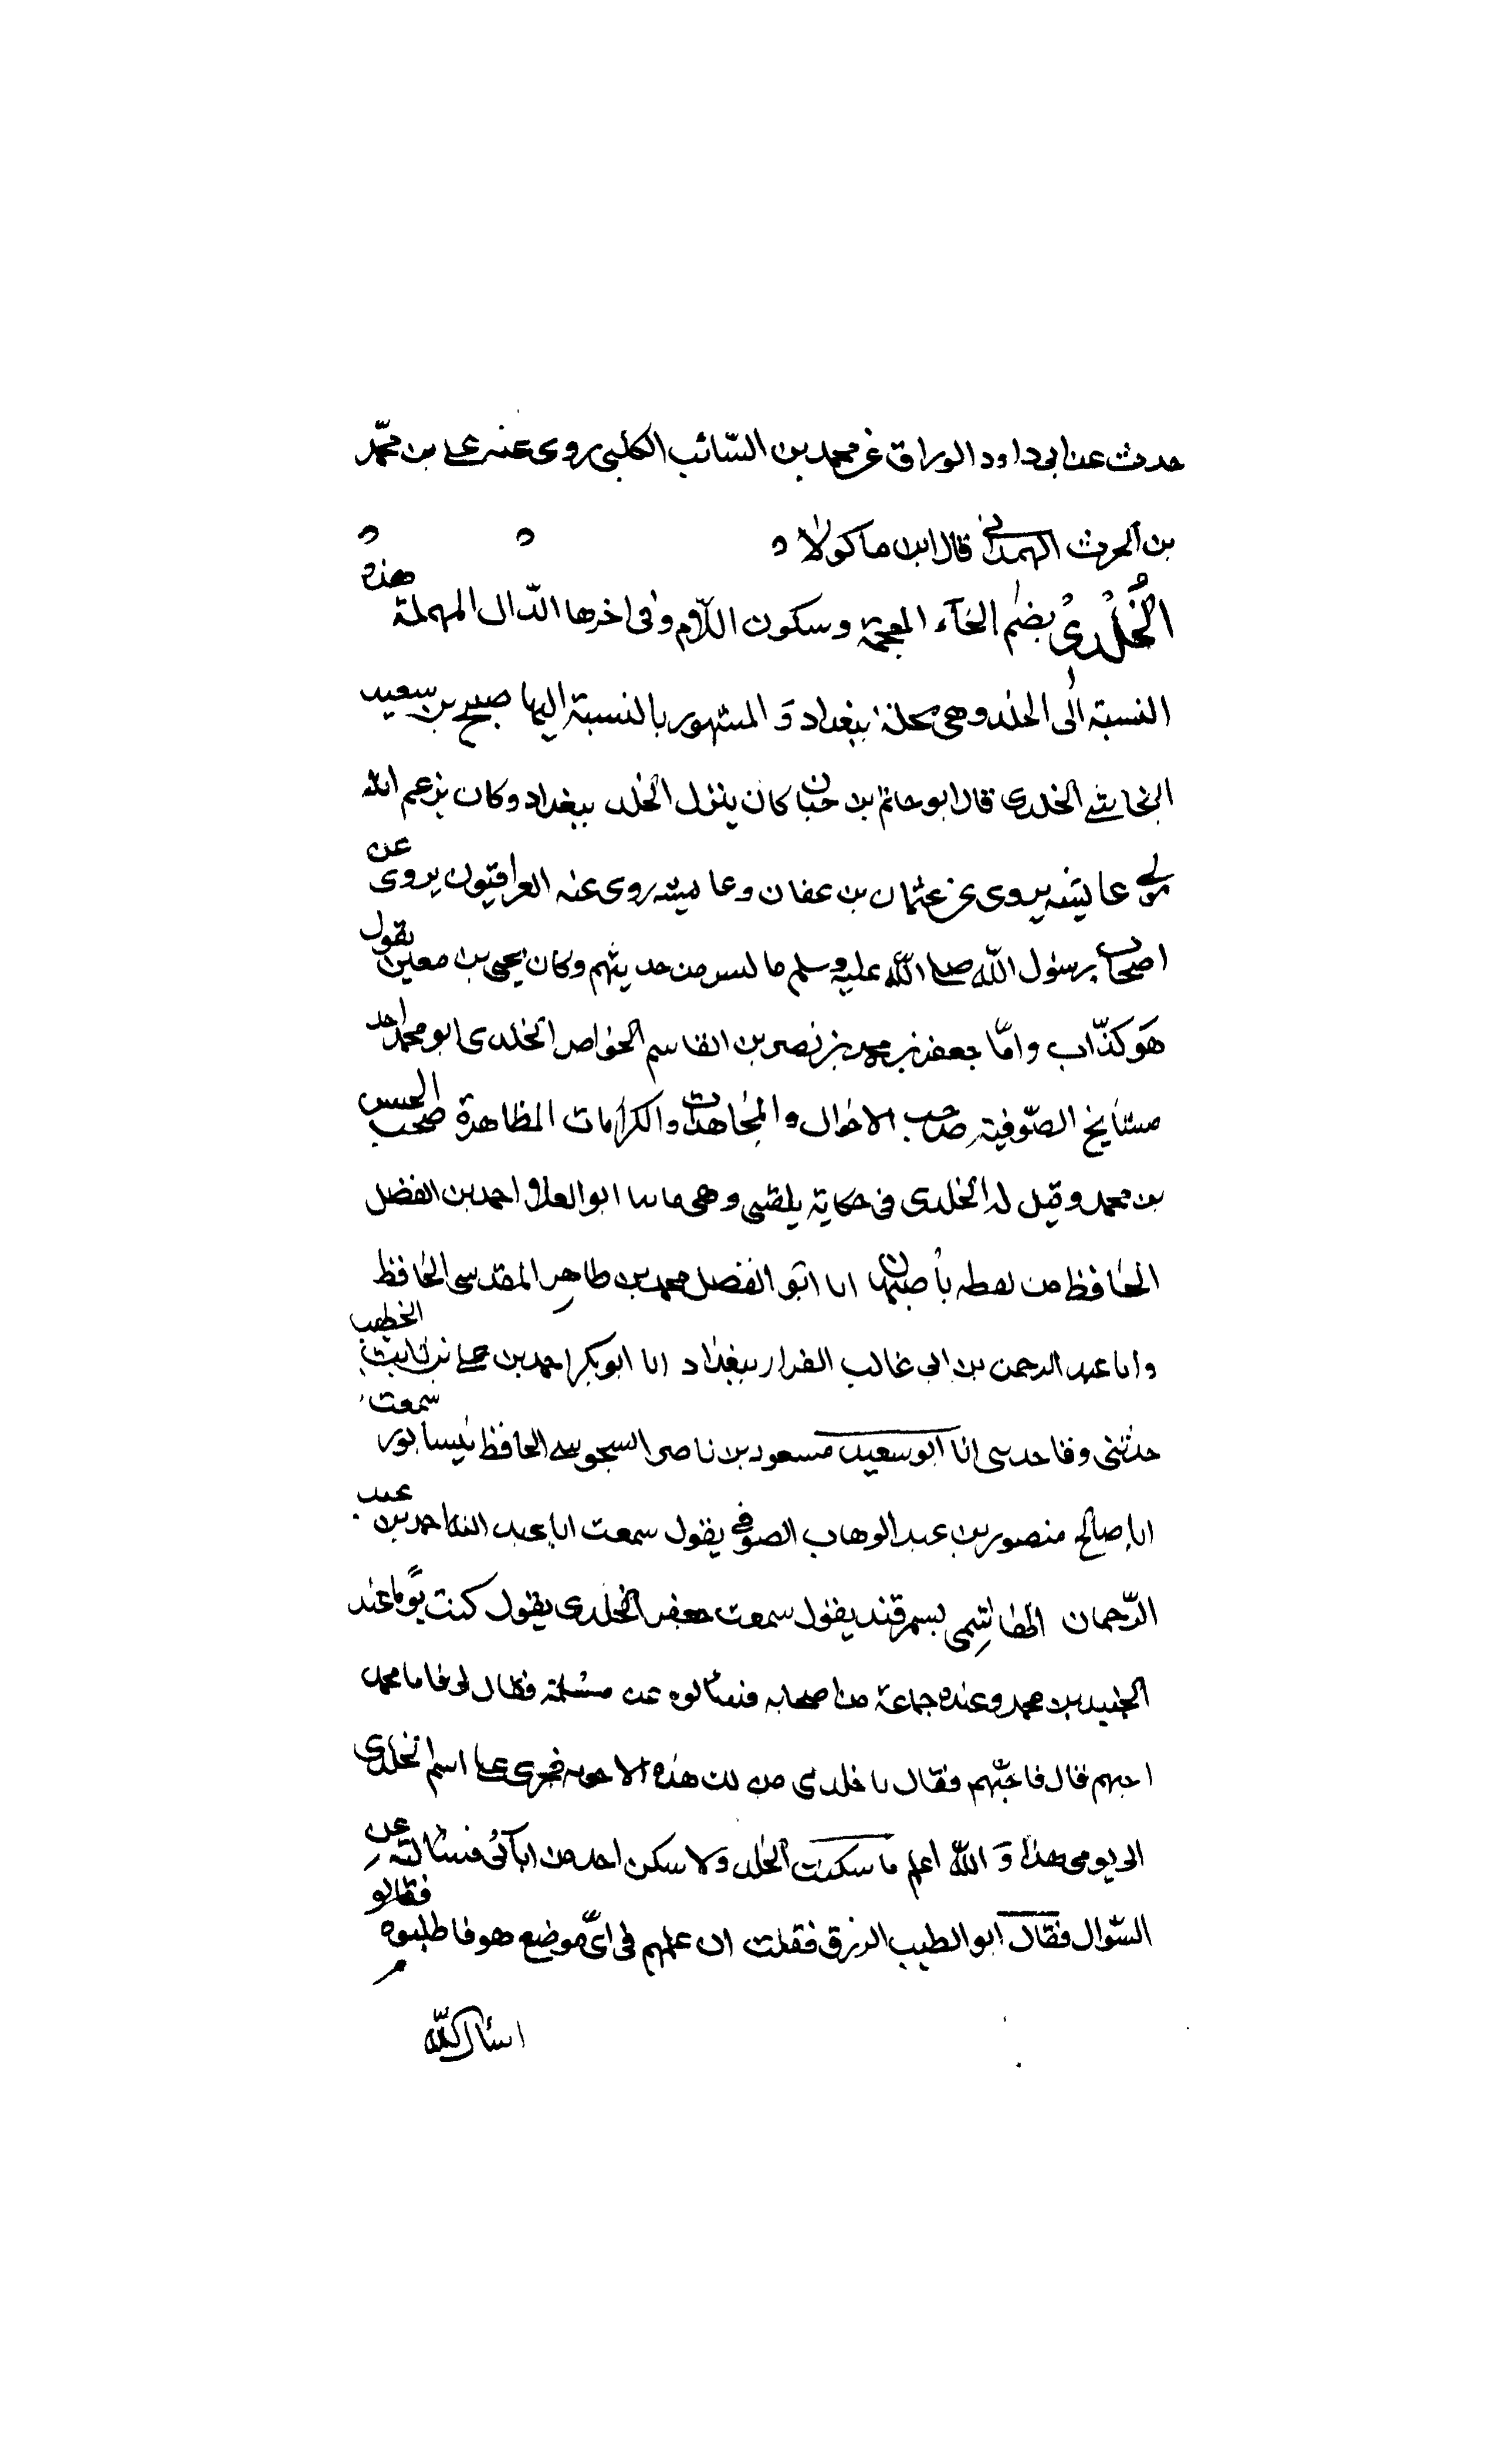 حدث عن ابى داود الوراق عن محمد بن السّائب الكلبى روى عنه على بن محمّد
بن الحرث الهمدانى قال ابن ماكولا
الخُلْدىُ بضم الخآء المعجمة وسكون اللّام وفى اخرها الدّال المهملة هذه
النسبة الى الخلد وهى محلة ببغداد وَ المشهور بالنسبة اليها صبيح بن سعيد
النجاشى الخلدى قال ابو حاتم بن حبان كان ينزل الخلد ببغداد وكان يزعم انه
مولى عايشه يروى عن عثمان بن عفان وعايشه روى عنه العراقيون يروى عن
اصحاب رسول اللّه صلى اللّه عليه وسلم ما ليس من حديثهم وكان يحيى بن معين يقول
هَو كذّاب وامّا جعفر بن محمد بن نصر بن القاسم الخواص الخلدى ابو محمد احد
مشايخ الصّوفية صاحب الاحوال والمجاهدات والكرامات الظاهرة صحب الجنيد
بن محمد وقيل له الخلدى فى حكاية بلغتنى وهى ما انا ابو العلاء احمد بن الفضل
الحافظ من لفظه بأصبهان انا ابو الفضل محمد بن طاهر المقدسى الحافظ
وانا عبد الرحمن بن ابى غالب القزاز ببغداد انا ابو بكر احمد بن على بن ثابت الخطيب
حدثنى وقا حدثنى انا ابو سعيد مسعود بن ناصر السجزى الحافظ نيسابور سمعت
ابا صالح منصور بن عبد الوهاب الصوفى يقول سمعت ابا عبد الله احمد بن عبد
الرّحمان الهاشمى بسمرقند يقول سمعت جعفر الخلدى يقول كنت يومًا عند
الجنيد بن محمد وعنده جماعة من اصحابه فسألوه عن مسئلة فقال لى يا با محمد
اجبهم قال فاجبتهم فقال يا خلدى من اين لك هذه الاجوبه فجرى على اسم الخلدى
الى يومى هذا وَ اللّه اعلم ما سكنت الخلد ولا سكن احد من ابآئى فسألته عن
السّوال فقال ابو الطيب الرزق فقلت ان علمتم فى اىّ موضع هو فاطلبوه فقالو
اسئال اللّه